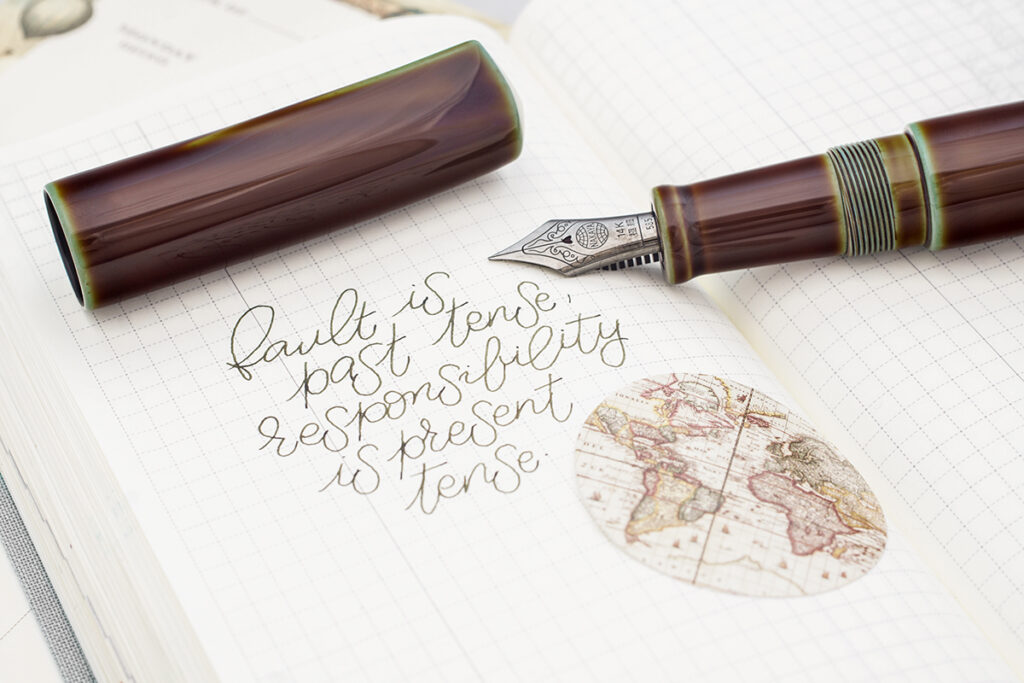 fault is
past tense,
responsibility
is present
tense.
14K
585